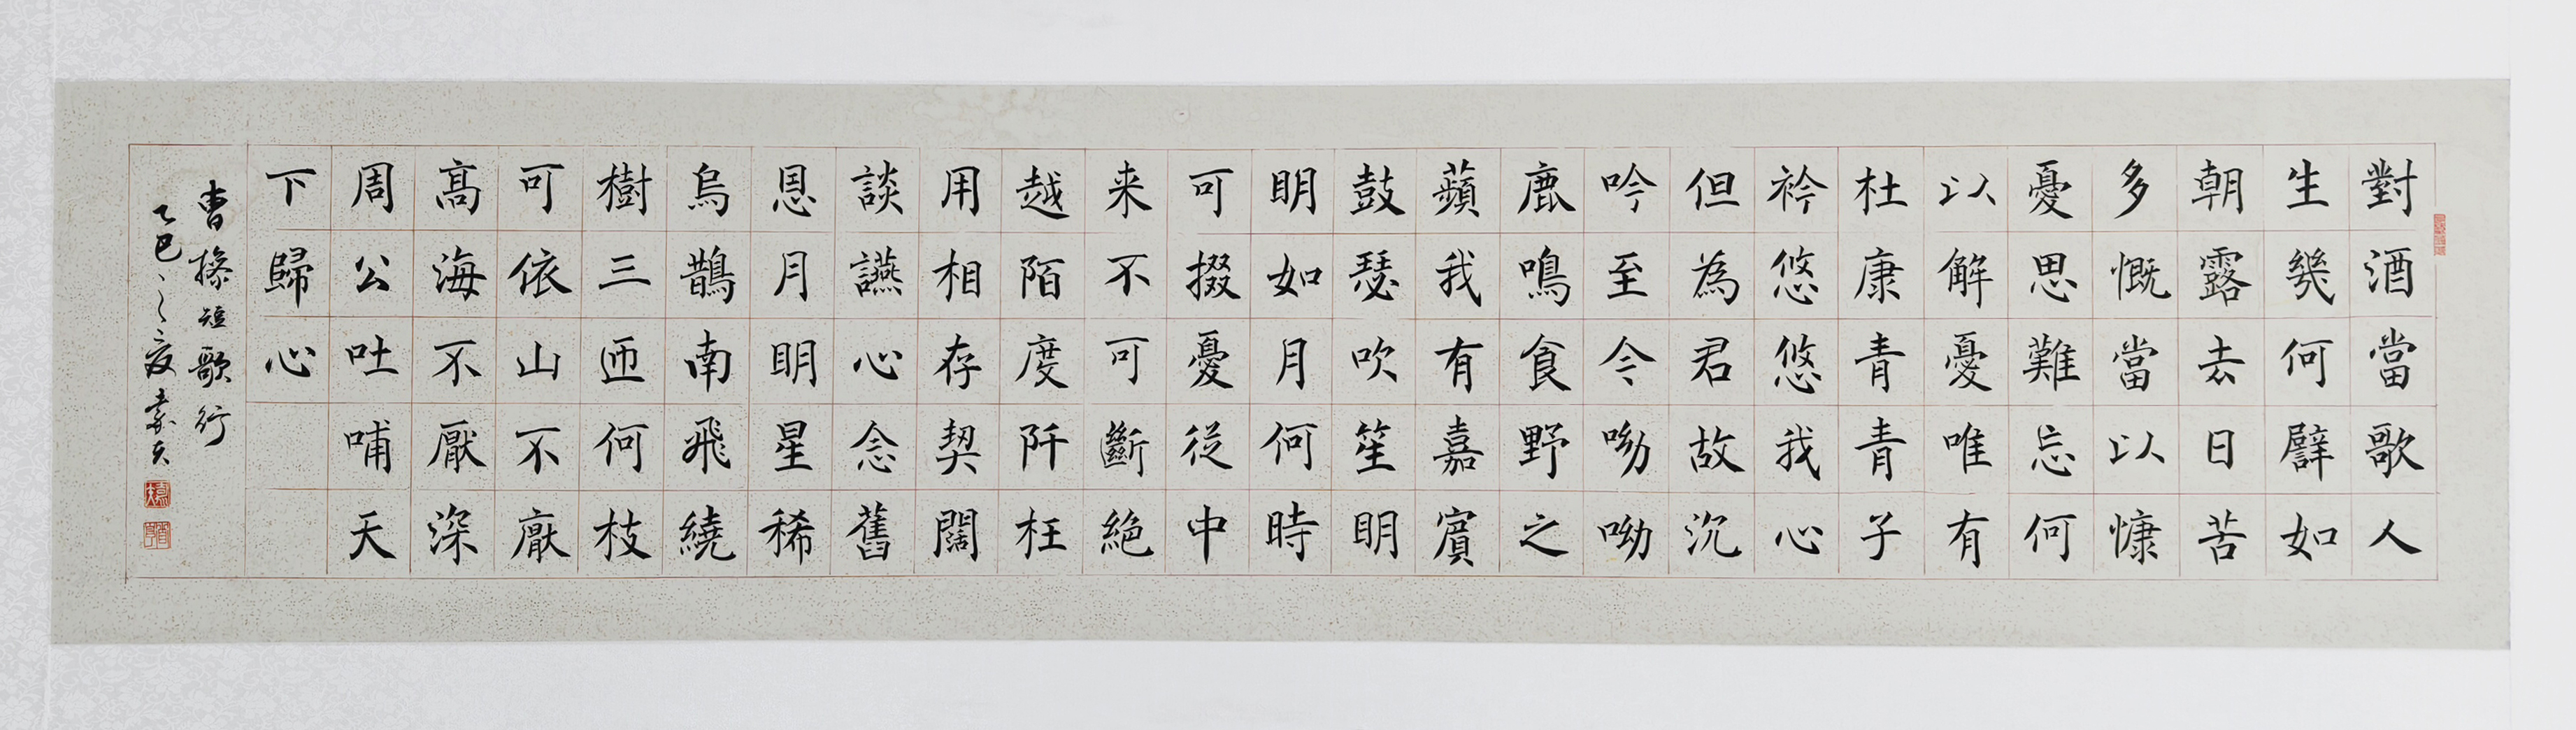 對酒當歌人
生幾何譬如
朝露去日苦
多慨當以慷
憂思難忘何
以解憂唯有
杜康青青子
衿悠悠我心
但為君故沉
吟至今呦呦
鹿鳴食野之
蘋我有嘉賓
鼓瑟吹笙明
明如月何時
可掇憂從中
来不可斷絕
越陌度阡枉
用相存契闊
談讌心念舊
恩月明星稀
烏鵲南飛繞
樹三匝何枝
可依山不厭
高海不厭深
周公吐哺天
下歸心
曹操短歌行
乙巳之夏